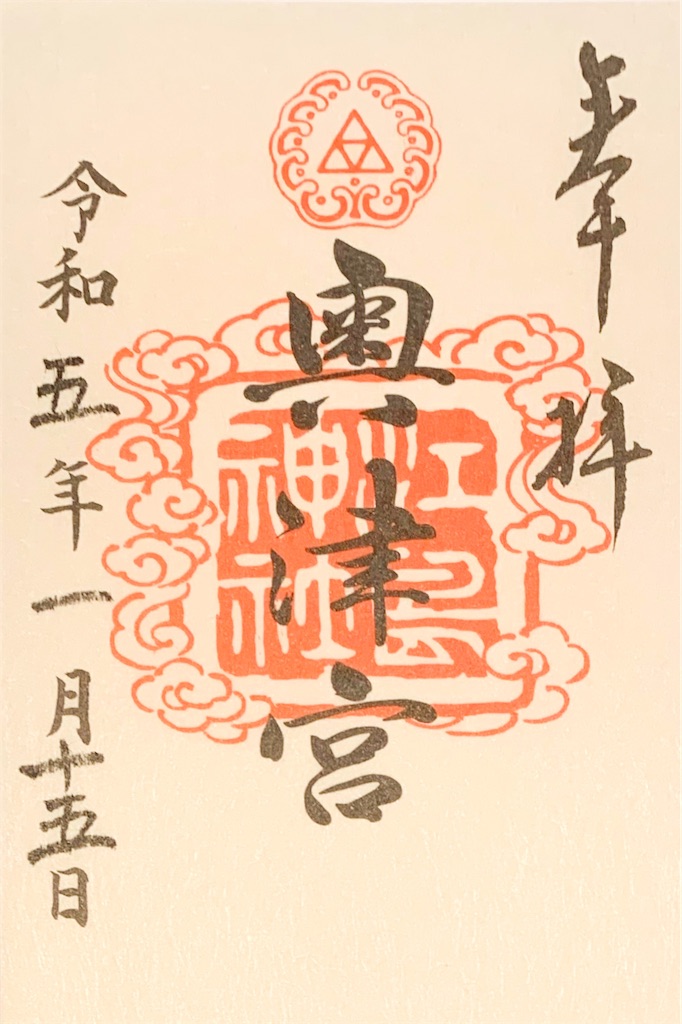 奉拝
奥津宮
江島神社
令和五年一月十五日